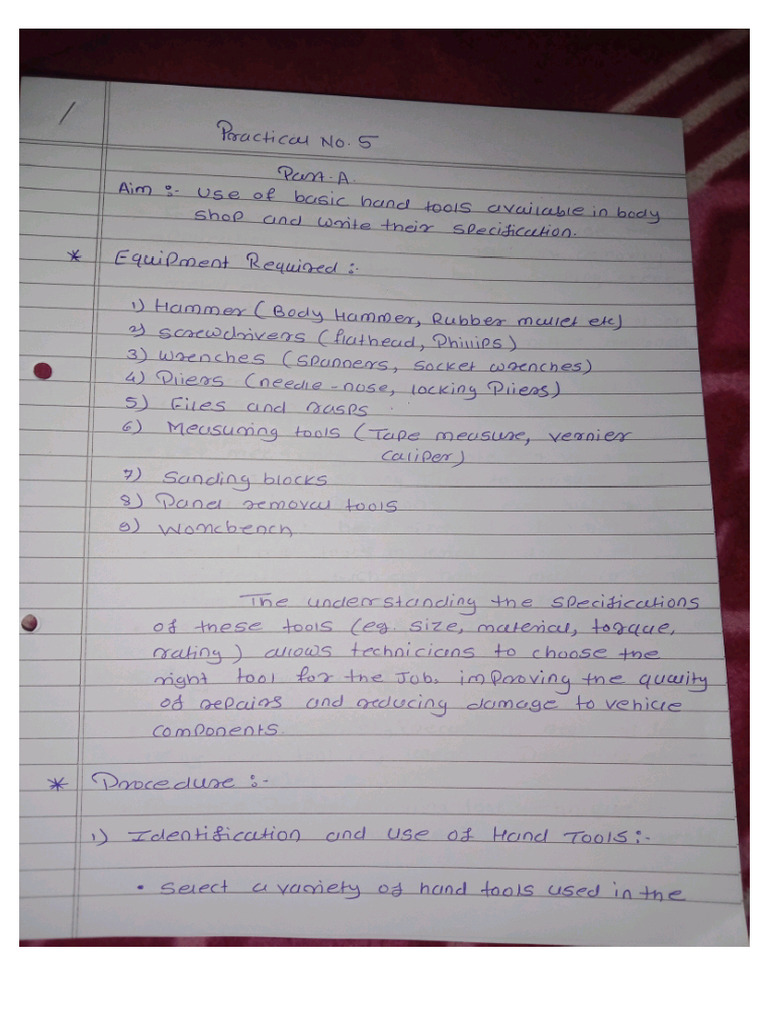 Practical No. 5
Part-A.
Aim :- Use of basic hand tools available in body
shop and write their specification.
* Equipment Required :-
1) Hammer (Body Hammer, Rubber mallet etc)
2) Screwdrivers (flathead, Phillips)
3) Wrenches (spanners, socket wrenches)
4) Pliers (needle-nose, locking Pliers)
5) Files and rasps
6) Measuring tools (Tape measure, vernier
caliper)
7) Sanding blocks
8) Panel removal tools
9) Workbench
The understanding the specifications
of these tools (eg. size, material, torque,
rating) allows technicians to choose the
right tool for the Job, improving the quality
of repairs and reducing damage to vehicle
components.
* Procedure :-
1) Identification and use of Hand Tools :-
• Select a variety of hand tools used in the